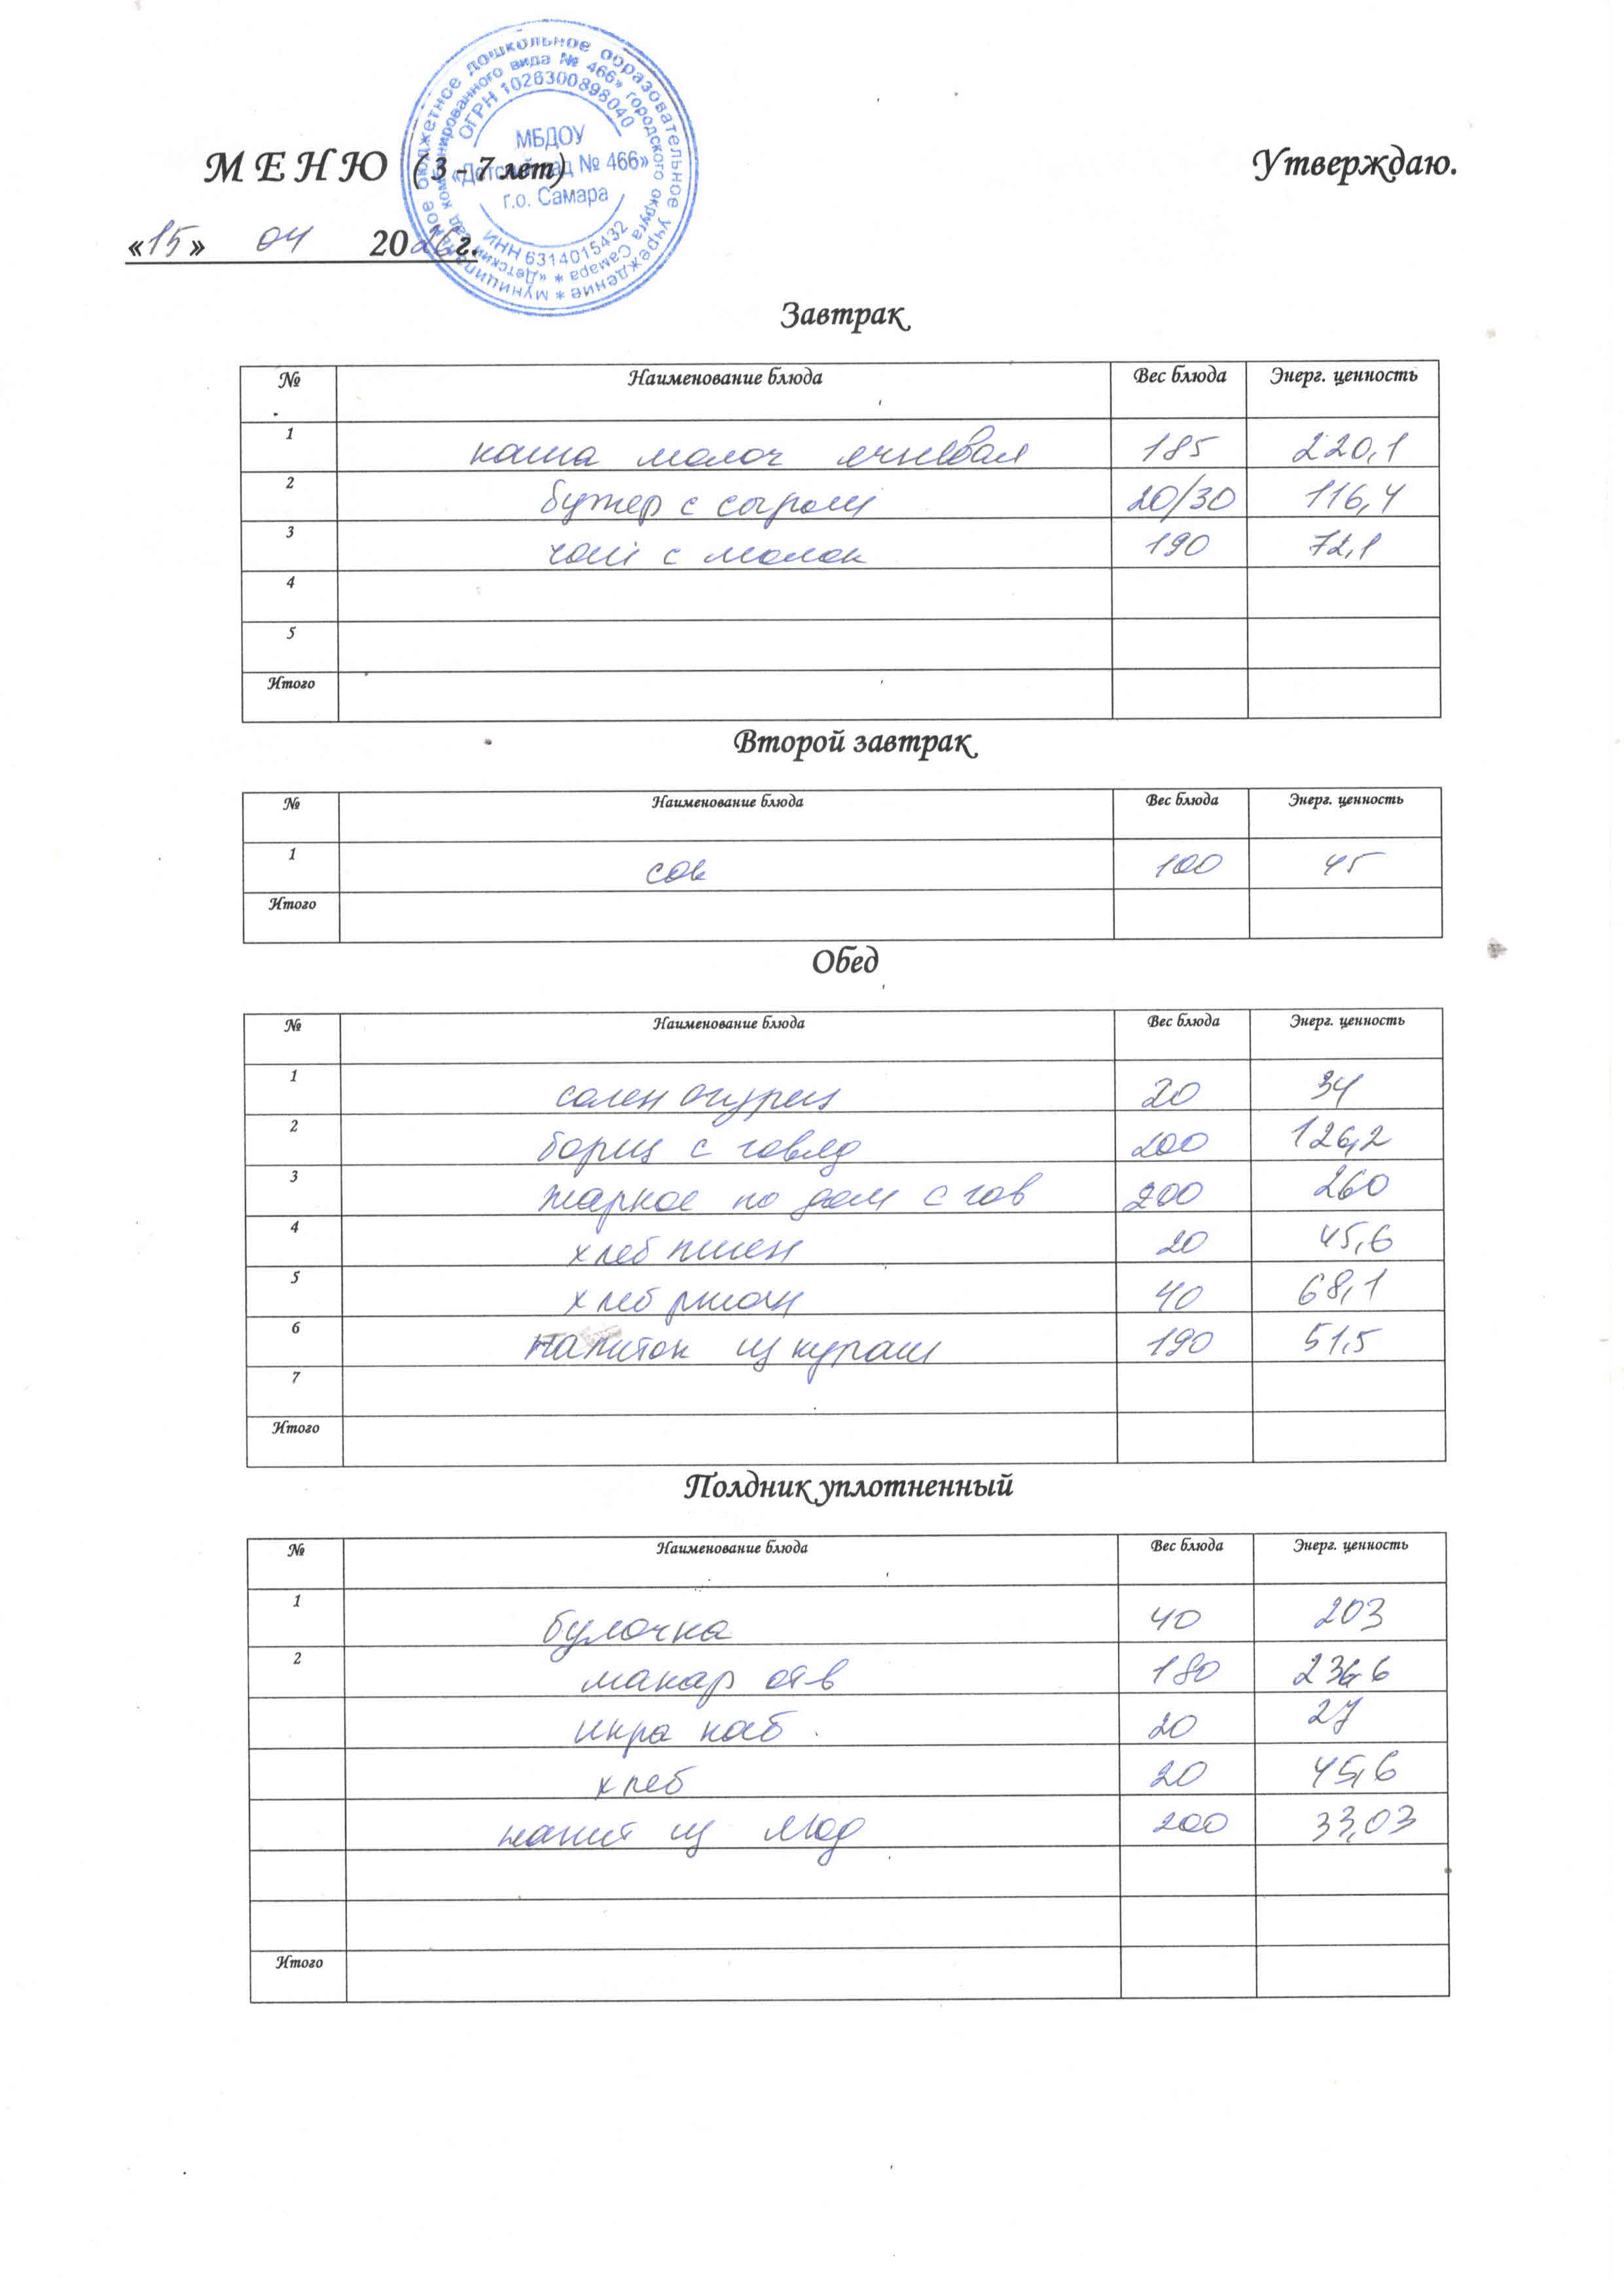 МЕНЮ (3 - 7 лет) Утверждаю.
«15» 04 2026г.
муниципальное бюджетное дошкольное образовательное учреждение *
«Детский сад комбинированного вида № 466» городского округа Самара *
ОГРН 1026300898040
МБДОУ
«Детский сад № 466»
г.о. Самара
ИНН 6314015432
Завтрак
№ Наименование блюда Вес блюда Энерг. ценность
1 каша молоч ячневая 185 220,1
2 бутер с сыром 20/30 116,4
3 чай с молок 190 72,1
4
5
Итого
Второй завтрак
№ Наименование блюда Вес блюда Энерг. ценность
1 сок 100 45
Итого
Обед
№ Наименование блюда Вес блюда Энерг. ценность
1 солен огурец 20 34
2 борщ с говяд 200 126,2
3 жаркое по дом с гов 200 260
4 хлеб пшен 20 45,6
5 хлеб ржан 40 68,1
6 напиток из кураги 190 51,5
7
Итого
Полдник уплотненный
№ Наименование блюда Вес блюда Энерг. ценность
1 булочка 40 203
2 макар отв 180 236,6
икра каб. 20 27
хлеб 20 45,6
напит из ягод 200 33,03
Итого